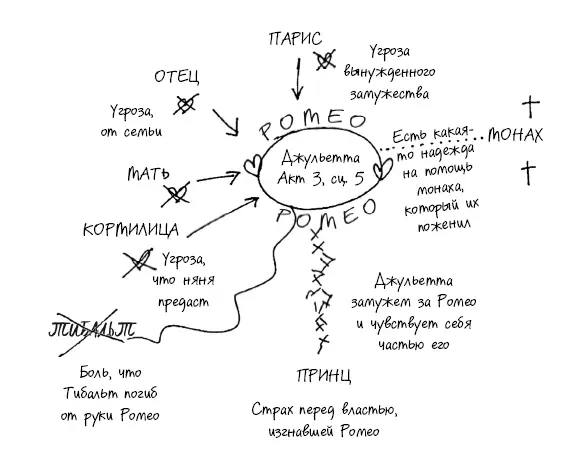 ПАРИС
Угроза
вынужденного
замужества
ОТЕЦ
Угроза,
от семьи
РОМЕО
Джульетта
Акт 3, сц. 5
РОМЕО
Есть какая-
то надежда
на помощь
монаха,
который их
поженил
МОНАХ
МАТЬ
КОРМИЛИЦА
Угроза,
что няня
предаст
ТИБАЛЬТ
Боль, что
Тибальт погиб
от руки Ромео
Джульетта
замужем за Ромео
и чувствует себя
частью его
ПРИНЦ
Страх перед властью,
изгнавшей Ромео